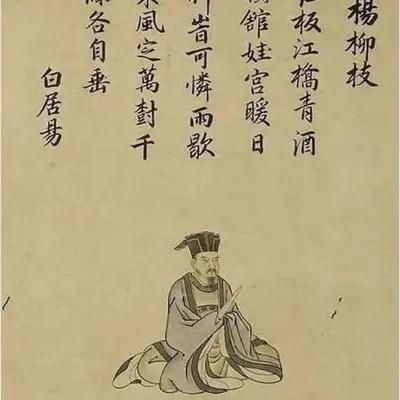 楊柳枝
板江橋青酒
館娃宮暖日
旹可憐雨歇
風定萬樹千
各自垂
白居易